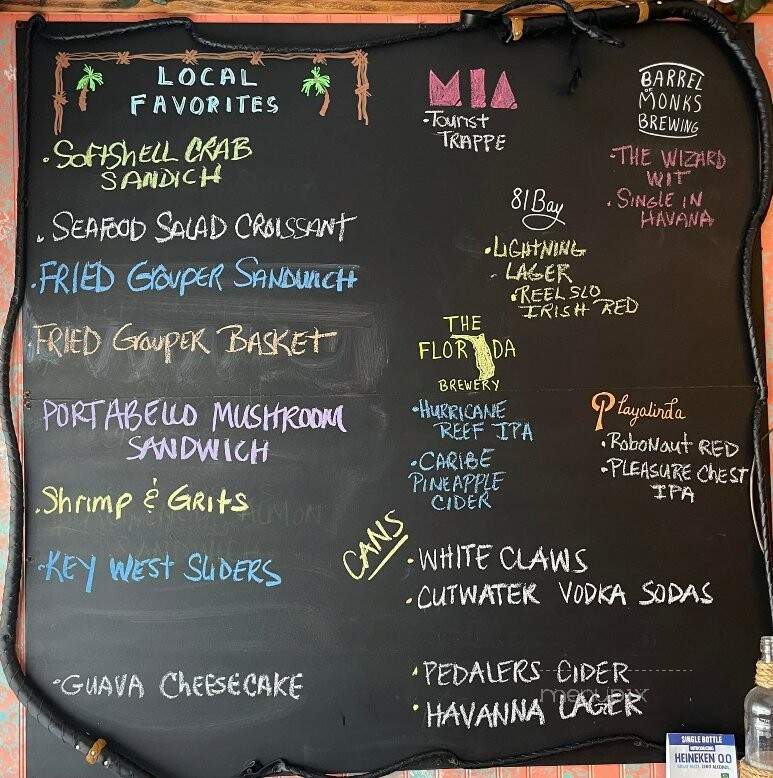 LOCAL
FAVORITES
·SOFTSHELL CRAB
SANDICH
·SEAFOOD SALAD CROISSANT
·FRIED GROUPER SANDWICH
FRIED GROUPER BASKET
PORTABELLO MUSHROOM
SANDWICH
·Shrimp & GRITS
·KEY WEST SLIDERS
·GUAVA CHEESECAKE
M.I.A.
·TOURIST
TRAPPE
BARREL
OF
MONKS
BREWING
·THE WIZARD
WIT
·SINGLE IN
HAVANA
81Bay
·LIGHTNING
LAGER
·REEL SLO
IRISH RED
THE
FLORIDA
BREWERY
·HURRICANE
REEF IPA
·CARIBE
PINEAPPLE
CIDER
Playalinda
·ROBONAUT RED
·PLEASURE CHEST
IPA
CANS
·WHITE CLAWS
·CUTWATER VODKA SODAS
·PEDALERS CIDER
·HAVANNA LAGER
menupix
SINGLE BOTTLE
INTRODUCING
HEINEKEN 0.0
GREAT TASTE. ZERO ALCOHOL.